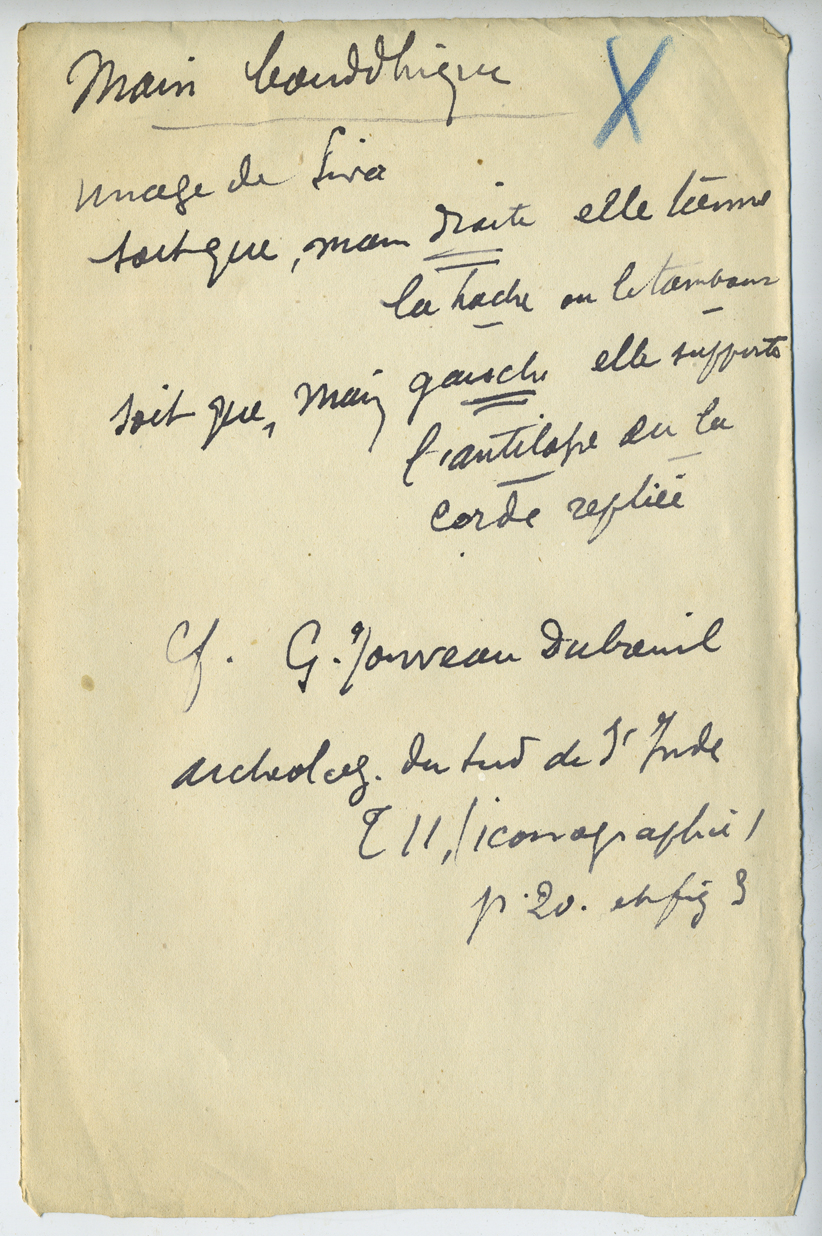 Main bouddhique X
image de Siva
soit que, main droite elle tienne
la hache ou le tambour
soit que, main gauche elle supporte
l'antilope ou la
corde repliée
Cf. G. Jouveau Dubreuil
archeolog. du sud de l'Inde
T II, (iconographie)
p. 20. et fig 3